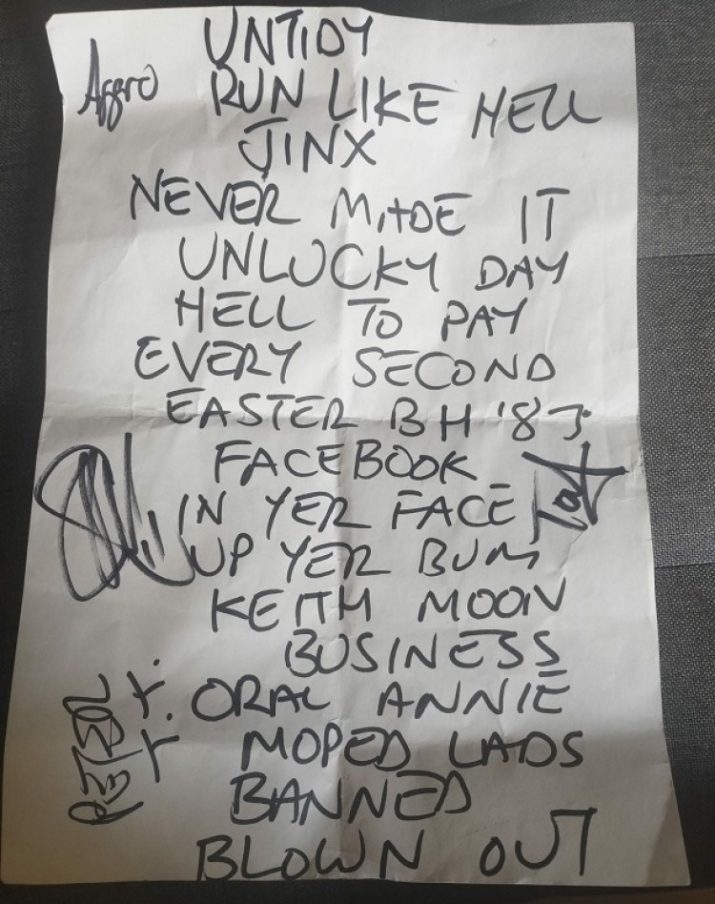 UNTIDY
Aggro
RUN LIKE HELL
JINX
NEVER MADE IT
UNLUCKY DAY
HELL TO PAY
EVERY SECOND
EASTER BH '83
FACEBOOK
IN YER FACE
UP YER BUM
KEITH MOON
BUSINESS
ORAL ANNIE
MOPED LADS
BANNED
BLOWN OUT